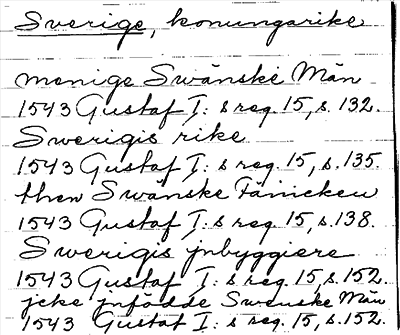 Sverige, konungarike
menige Swänske Män
1543 Gustaf I: s reg. 15, s. 132.
Swerigis rike
1543 Gustaf I: s reg. 15, s. 135.
then Swänske Fänicken
1543 Gustaf I: s reg. 15, s. 138.
Swerigis jnbyggiere
1543 Gustaf I: s reg. 15, s. 152.
jcke jnfödde Swenske Män
1543 Gustaf I: s reg. 15, s. 152.